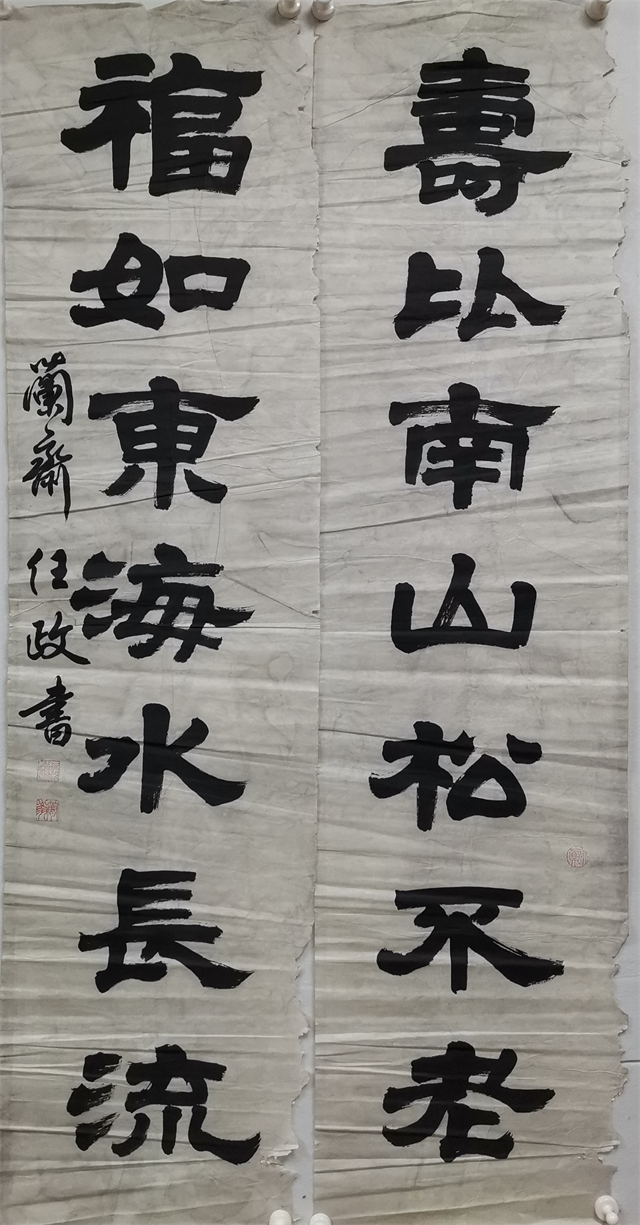 壽比南山松不老
福如東海水長流
蘭齋 任政書